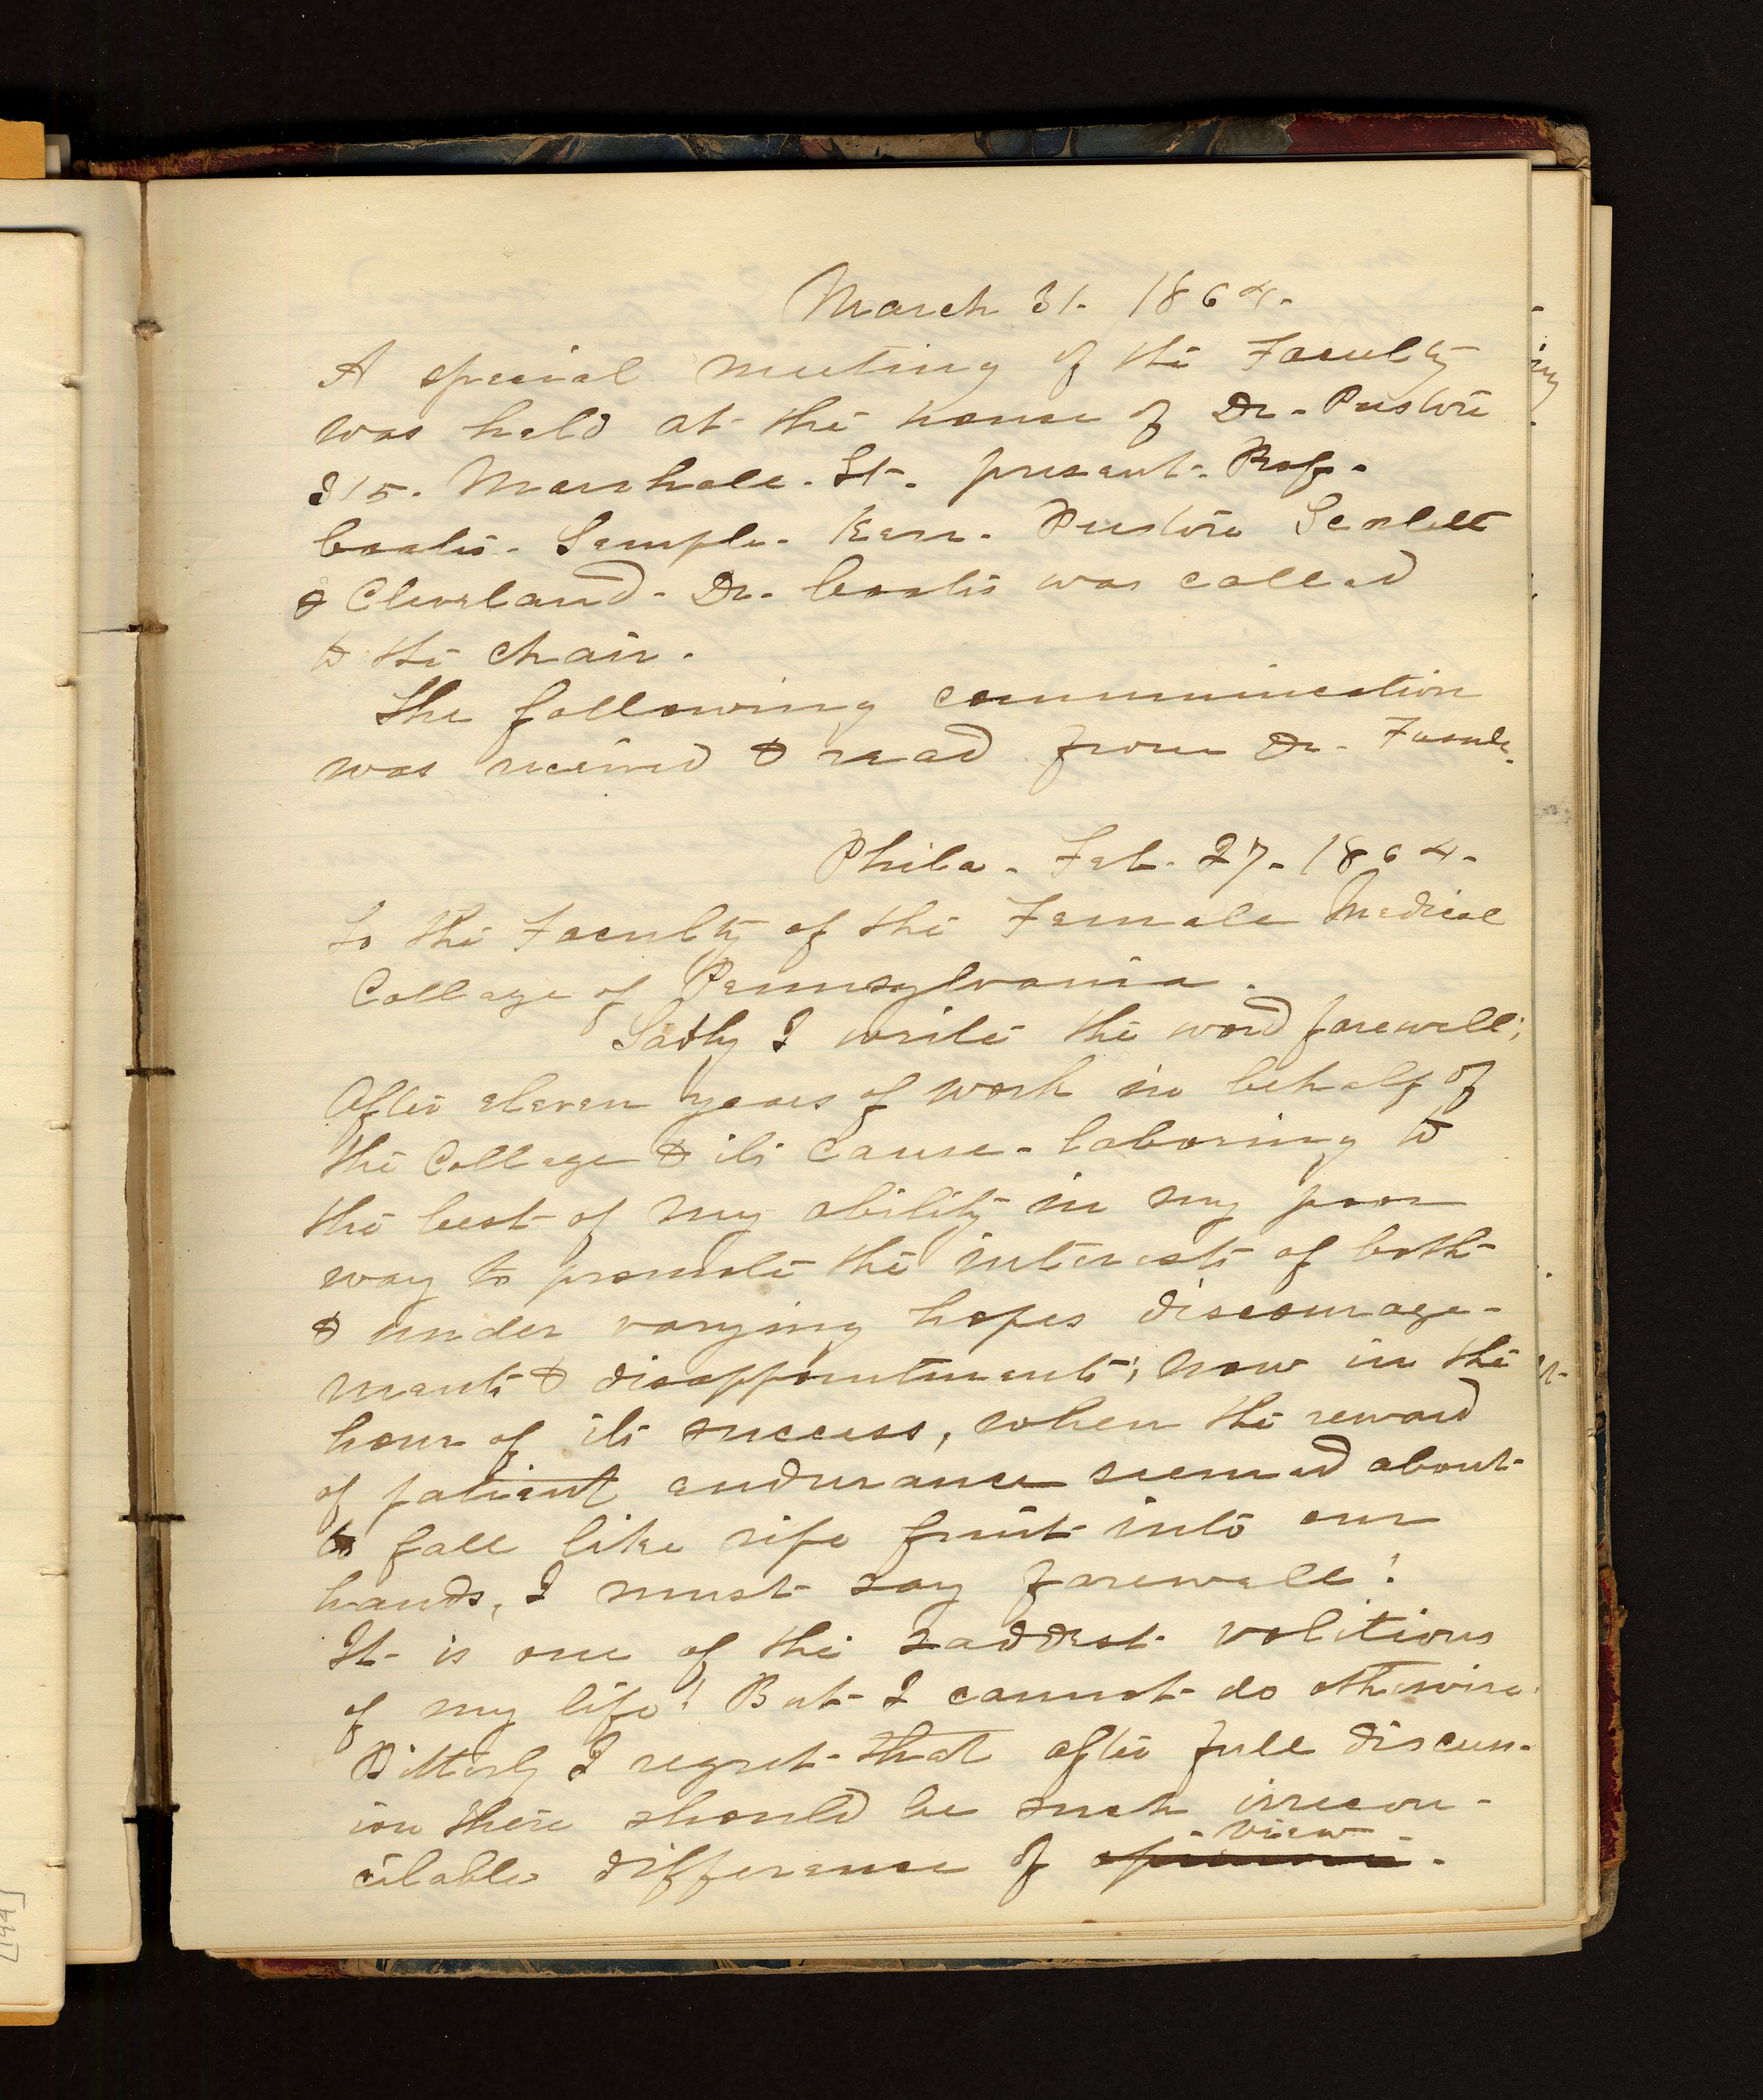 March 31. 1864.
A special meeting of the Faculty
was held at the house of Dr. Preston
315. Marshall. St. present. Prof.
Coates. Sample. Kerr. Preston Scarlett
& Cleveland. Dr. Coates was called
to the chair.
The following communication
was received & read from Dr.
Phila. Feb. 27. 1864.
To the Faculty of the Female Medical
College of Pennsylvania.
Sadly I write the word farewell;
After eleven years of work in behalf of
the College & its cause. laboring to
the best of my ability in my poor
way to promote the interests of both
& under varying hopes discourage-
ments & disappointments; now in the
hour of its success, when the reward
of patient endurance seemed about
to fall like ripe fruit into our
hands, I must say farewell!
It is one of the saddest volitions
of my life! But I cannot do otherwise.
Bitterly I regret that after full discuss-
ion there should be such irrecon-
view
cilable difference of opinion.